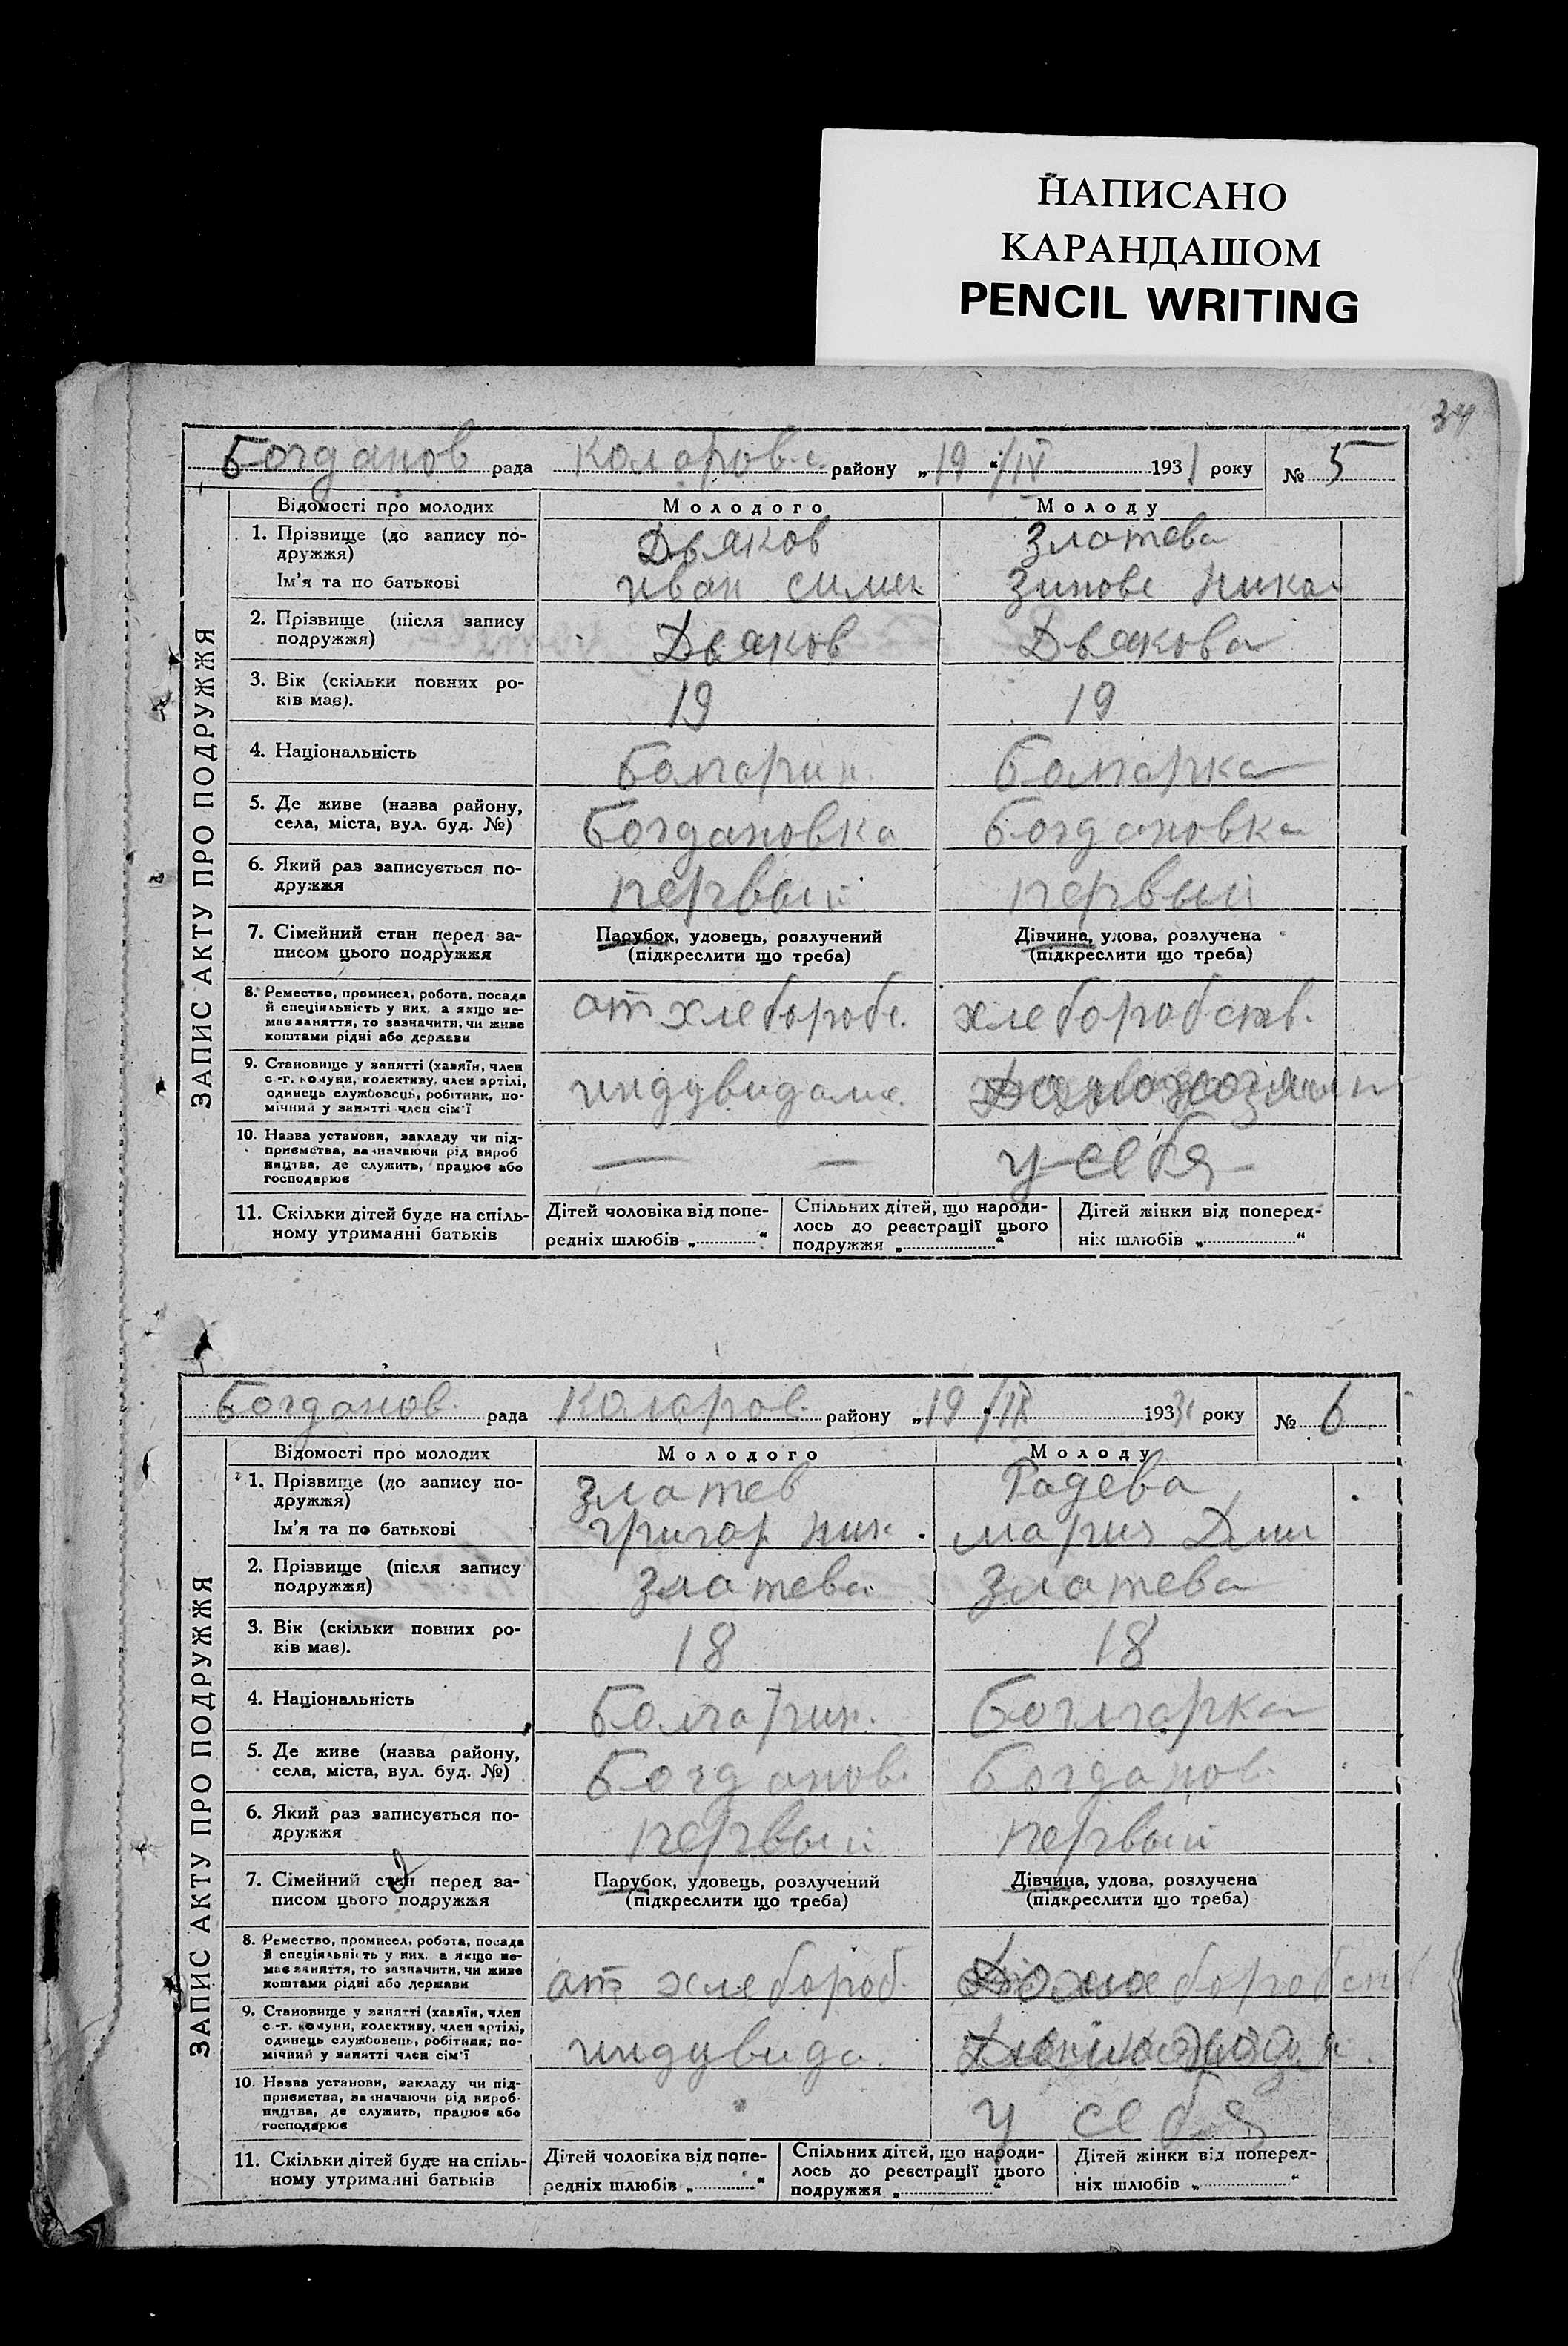 НАПИСАНО
КАРАНДАШОМ
PENCIL WRITING
34
Богданов рада Коларов.с. району „19“/IV 1931 року № 5
ЗАПИС АКТУ ПРО ПОДРУЖЖЯ
Відомості про молодих Молодого Молоду
1. Прізвище (до запису по-
дружжя) Дьяков Златева
Ім'я та по батькові иван симен зинове никол
2. Прізвище (після запису
подружжя) Дьяков Дьякова
3. Вік (скільки повних ро-
ків має). 19 19
4. Національність Болгарин. Болгарка
5. Де живе (назва району,
села, міста, вул. буд. №) Богдановка Богдановка
6. Який раз записується по-
дружжя первый первый
7. Сімейний стан перед за-
писом цього подружжя
Парубок, удовець, розлучений
(підкреслити що треба)
Дівчина, удова, розлучена
(підкреслити що треба)
8. Ремество, промисел, робота, посада
й спеціяльність у них, а якщо не-
має заняття, то зазначити, чи живе
коштами рідні або держави
от хлеборобс. хлеборобств.
9. Становище у занятті (хазяїн, член
с.-г. комуни, колективу, член артілі,
одинець службовець, робітник, по-
мічний у занятті член сім'ї
индувидалн.
10. Назва установи, закладу чи під-
приємства, зазначаючи рід вироб
ництва, де служить, працює або
господарює
— — у себя
11. Скільки дітей буде на спіль-
ному утриманні батьків
Дітей чоловіка від попе-
редніх шлюбів „ “
Спільних дітей, що народи-
лось до реєстрації цього
подружжя „ “
Дітей жінки від поперед-
ніх шлюбів „ “
Богданов. рада Коларов. району „19“/IX 1931 року № 6
ЗАПИС АКТУ ПРО ПОДРУЖЖЯ
Відомості про молодих Молодого Молоду
1. Прізвище (до запису по-
дружжя) Златев Радева
Ім'я та по батькові григор ник. мария Дми
2. Прізвище (після запису
подружжя) Златева Златева
3. Вік (скільки повних ро-
ків має). 18 18
4. Національність Болгарин. Боглгарка
5. Де живе (назва району,
села, міста, вул. буд. №) Богданов. Богданов.
6. Який раз записується по-
дружжя первый первый
7. Сімейний стан перед за-
писом цього подружжя
Парубок, удовець, розлучений
(підкреслити що треба)
Дівчина, удова, розлучена
(підкреслити що треба)
8. Ремество, промисел, робота, посада
й спеціяльність у них, а якщо не-
має заняття, то зазначити, чи живе
коштами рідні або держави
от хлебороб.
9. Становище у занятті (хазяїн, член
с.-г. комуни, колективу, член артілі,
одинець службовець, робітник, по-
мічний у занятті член сім'ї
индувида.
10. Назва установи, закладу чи під-
приємства, зазначаючи рід вироб-
ництва, де служить, працює або
господарює
у себя
11. Скільки дітей буде на спіль-
ному утриманні батьків
Дітей чоловіка від попе-
редніх шлюбів „ “
Спільних дітей, що народи-
лось до реєстрації цього
подружжя „ “
Дітей жінки від поперед-
ніх шлюбів „ “